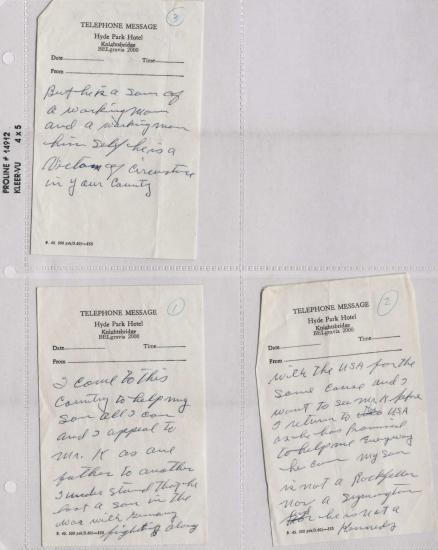 PROLINE # 14912
KLEER-VU 4 x 5
3
TELEPHONE MESSAGE
Hyde Park Hotel
Knightsbridge
BELgravia 2000
Date Time
From
But he is a son of
a working man
and a working man
him self he is a
Victom of Circumstance
in your Country
1
TELEPHONE MESSAGE
Hyde Park Hotel
Knightsbridge
BELgravia 2000
Date Time
From
I come to this
Country to help my
son all I can
and I appeal to
Mr. K as one
father to another
I under stand that he
lost a son in the
war with Germany
fighting along
2
TELEPHONE MESSAGE
Hyde Park Hotel
Knightsbridge
BELgravia 2000
Date Time
From
with the USA for the
same cause and I
want to see Mr K before
I return to USA
as he has promised
to help me Every way
he can my son
is not a Rockfeller
nor a Symington
he is not a
Kennedy